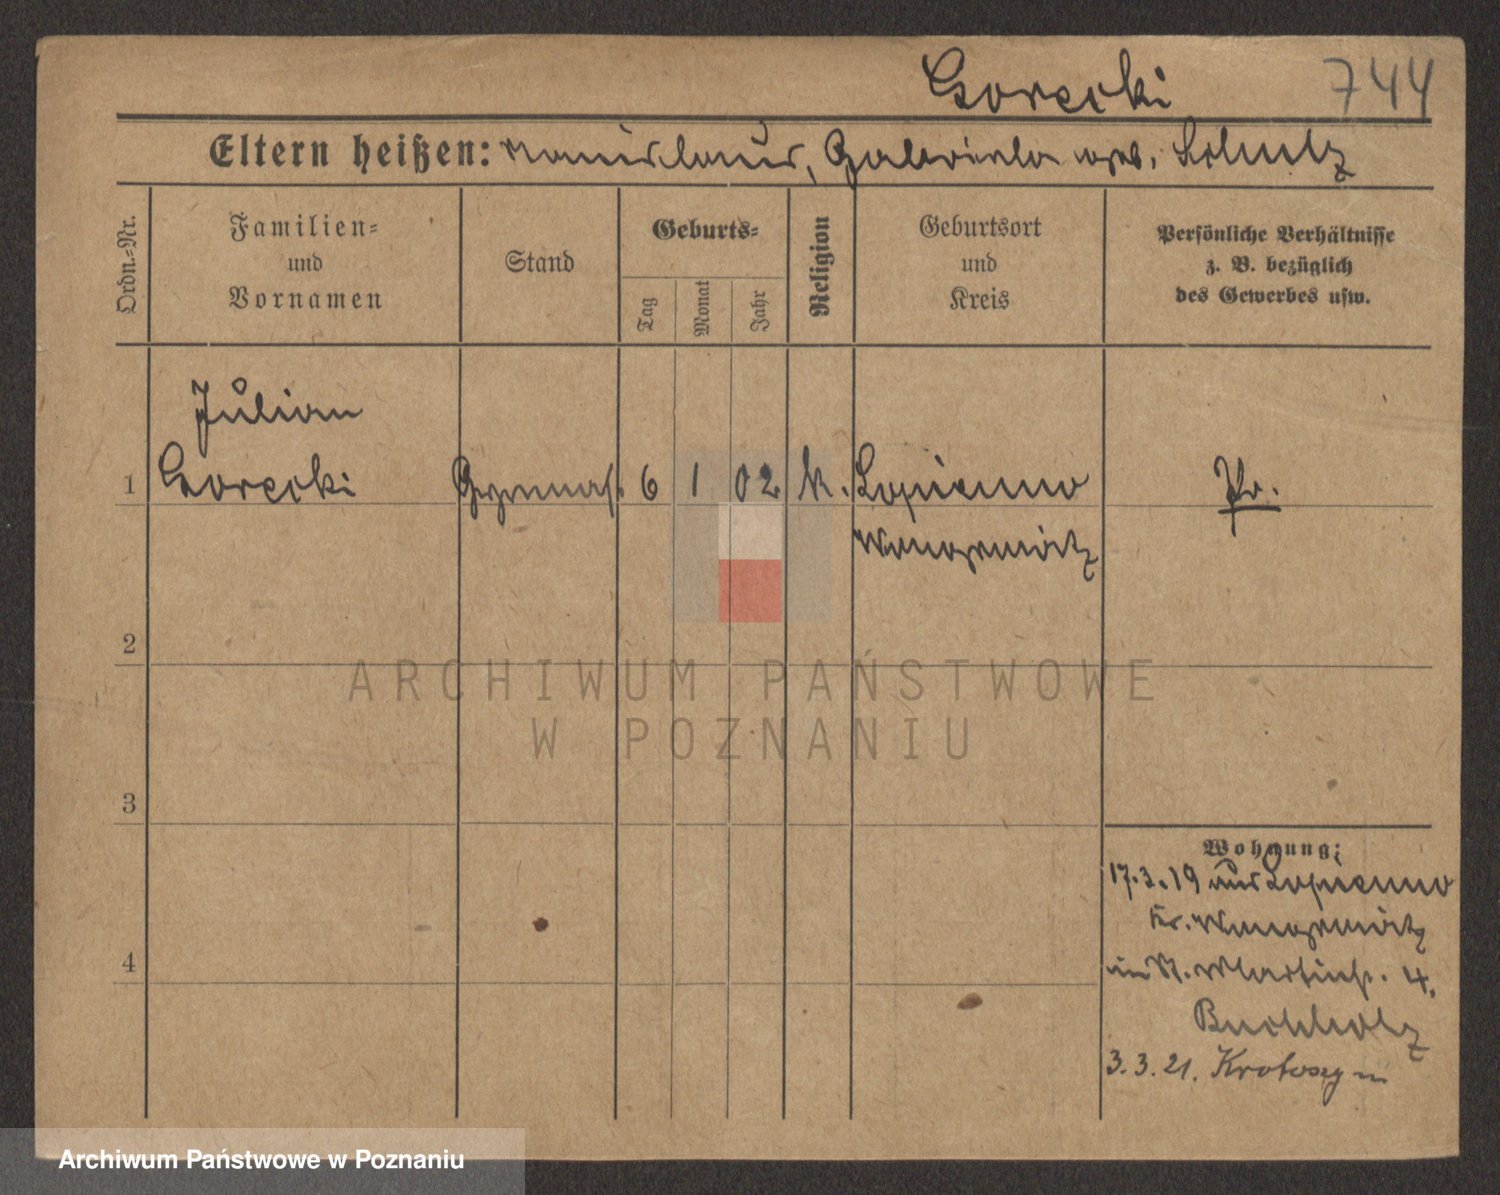 Gorecki 744
Eltern heißen: Stanislaus, Gabriela geb. Schulz
Ordn.-Nr.
Familien-
und
Vornamen
Stand
Geburts-
Tag
Monat
Jahr
Religion
Geburtsort
und
Kreis
Persönliche Verhältnisse
z. B. bezüglich
des Gewerbes usw.
Julian
1 Gorecki Gymnas. 6 1 02 k. Lopienno Pr.
Wongrowitz
2
3
4
Wohnung:
17.3.19 aus Lopienno
Kr. Wongrowitz
in St. Martinstr. 4.
Buchholz
3.3.21. Krotoszyn
ARCHIWUM PAŃSTWOWE
W POZNANIU
Archiwum Państwowe w Poznaniu